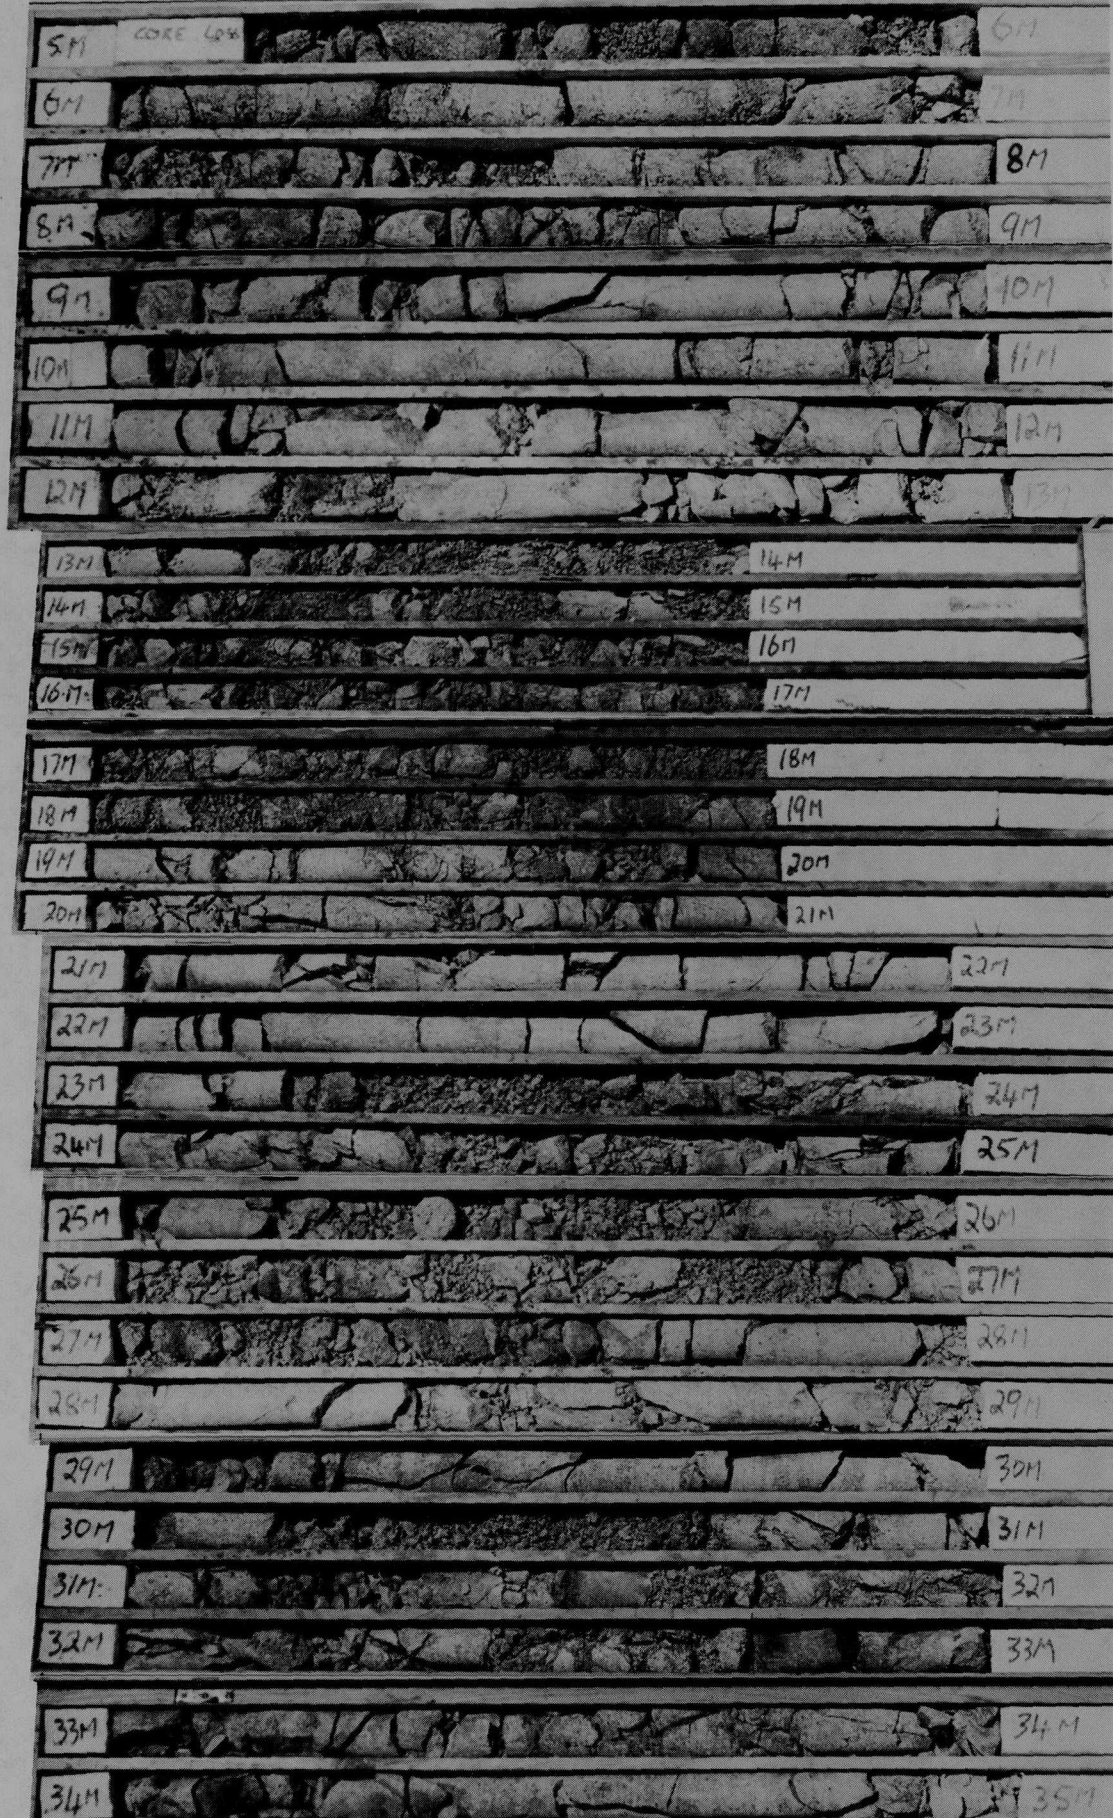 5M CORE LOSS 6M
6M 7M
7M 8M
8M 9M
9M 10M
10M 11M
11M 12M
12M 13M
13M 14M
14M 15M
15M 16M
16M 17M
17M 18M
18M 19M
19M 20M
20M 21M
21M 22M
22M 23M
23M 24M
24M 25M
25M 26M
26M 27M
27M 28M
28M 29M
29M 30M
30M 31M
31M 32M
32M 33M
33M 34M
34M 35M